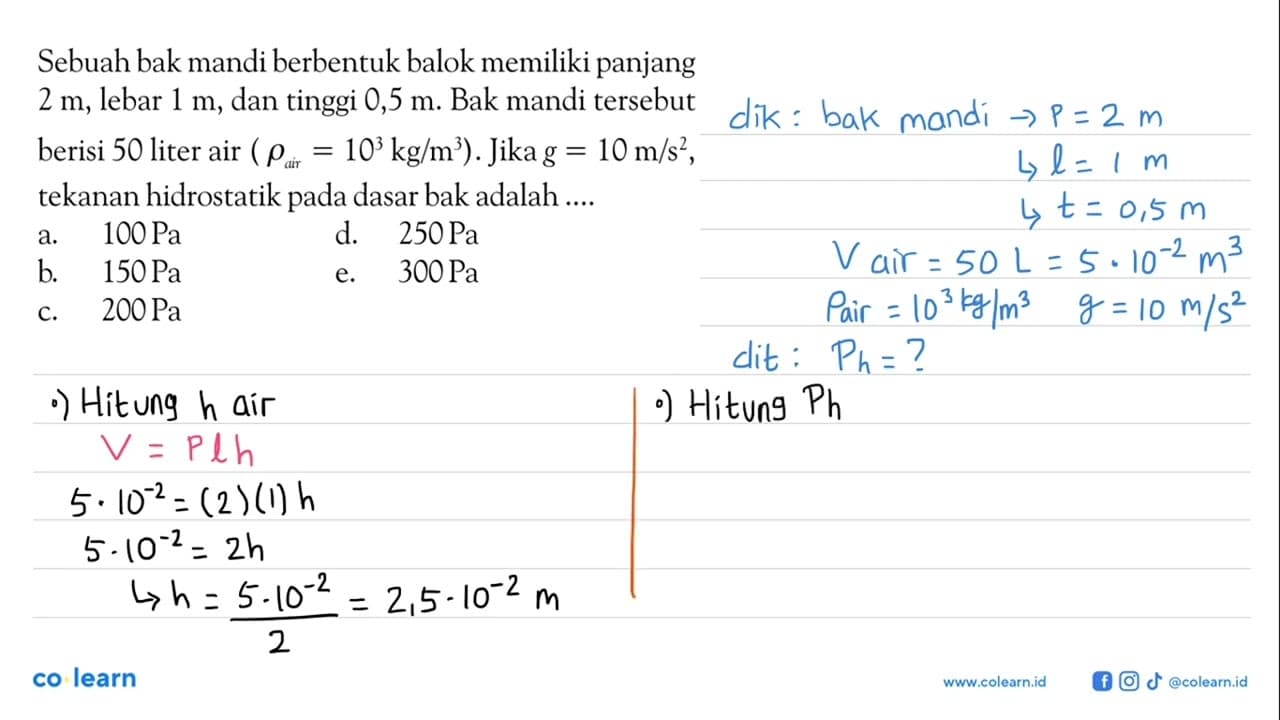 Sebuah bak mandi berbentuk balok memiliki panjang
2 m, lebar 1 m, dan tinggi 0,5 m. Bak mandi tersebut
berisi 50 liter air (ρ_air = 10³ kg/m³). Jika g = 10 m/s²,
tekanan hidrostatik pada dasar bak adalah ....
a. 100 Pa d. 250 Pa
b. 150 Pa e. 300 Pa
c. 200 Pa
dik : bak mandi → P = 2 m
↳ l = 1 m
↳ t = 0,5 m
V air = 50 L = 5 · 10⁻² m³
ρair = 10³ kg/m³ g = 10 m/s²
dit : Ph = ?
•) Hitung h air
V = P l h
5 · 10⁻² = (2)(1) h
5 · 10⁻² = 2h
↳ h = 5 · 10⁻² / 2 = 2,5 · 10⁻² m
•) Hitung Ph
co learn
www.colearn.id @colearn.id